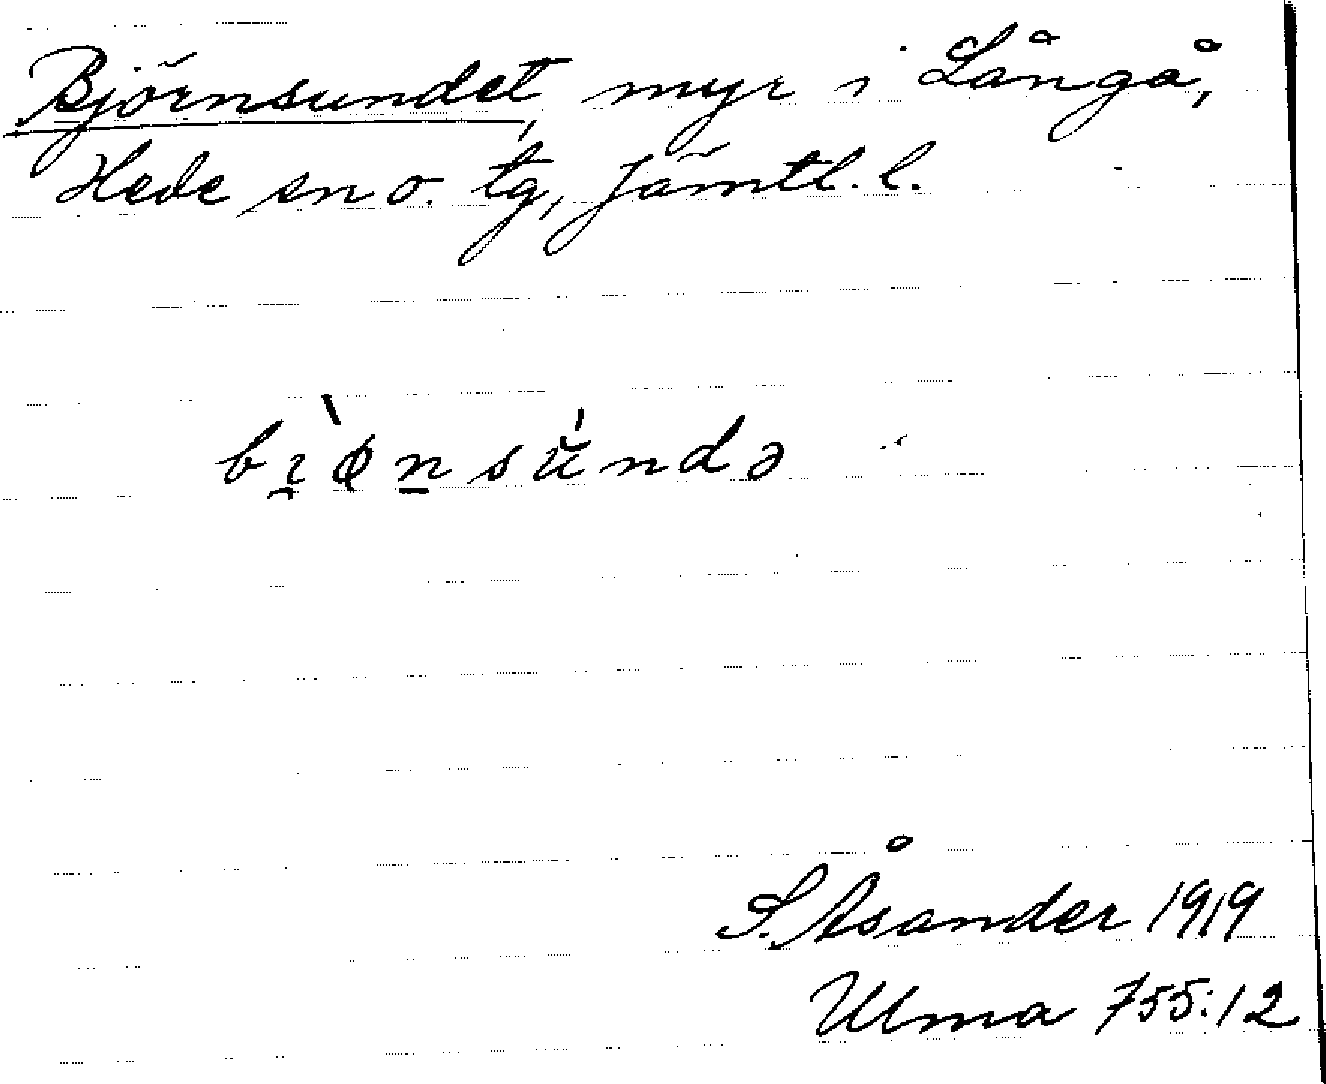 Björnsundet, myr i Långå,
Hede sn o. tg, Jämtl. l.
bi̯ø̀n̲sŭ́ndə
S. Åsander 1919
Ulma 755:12